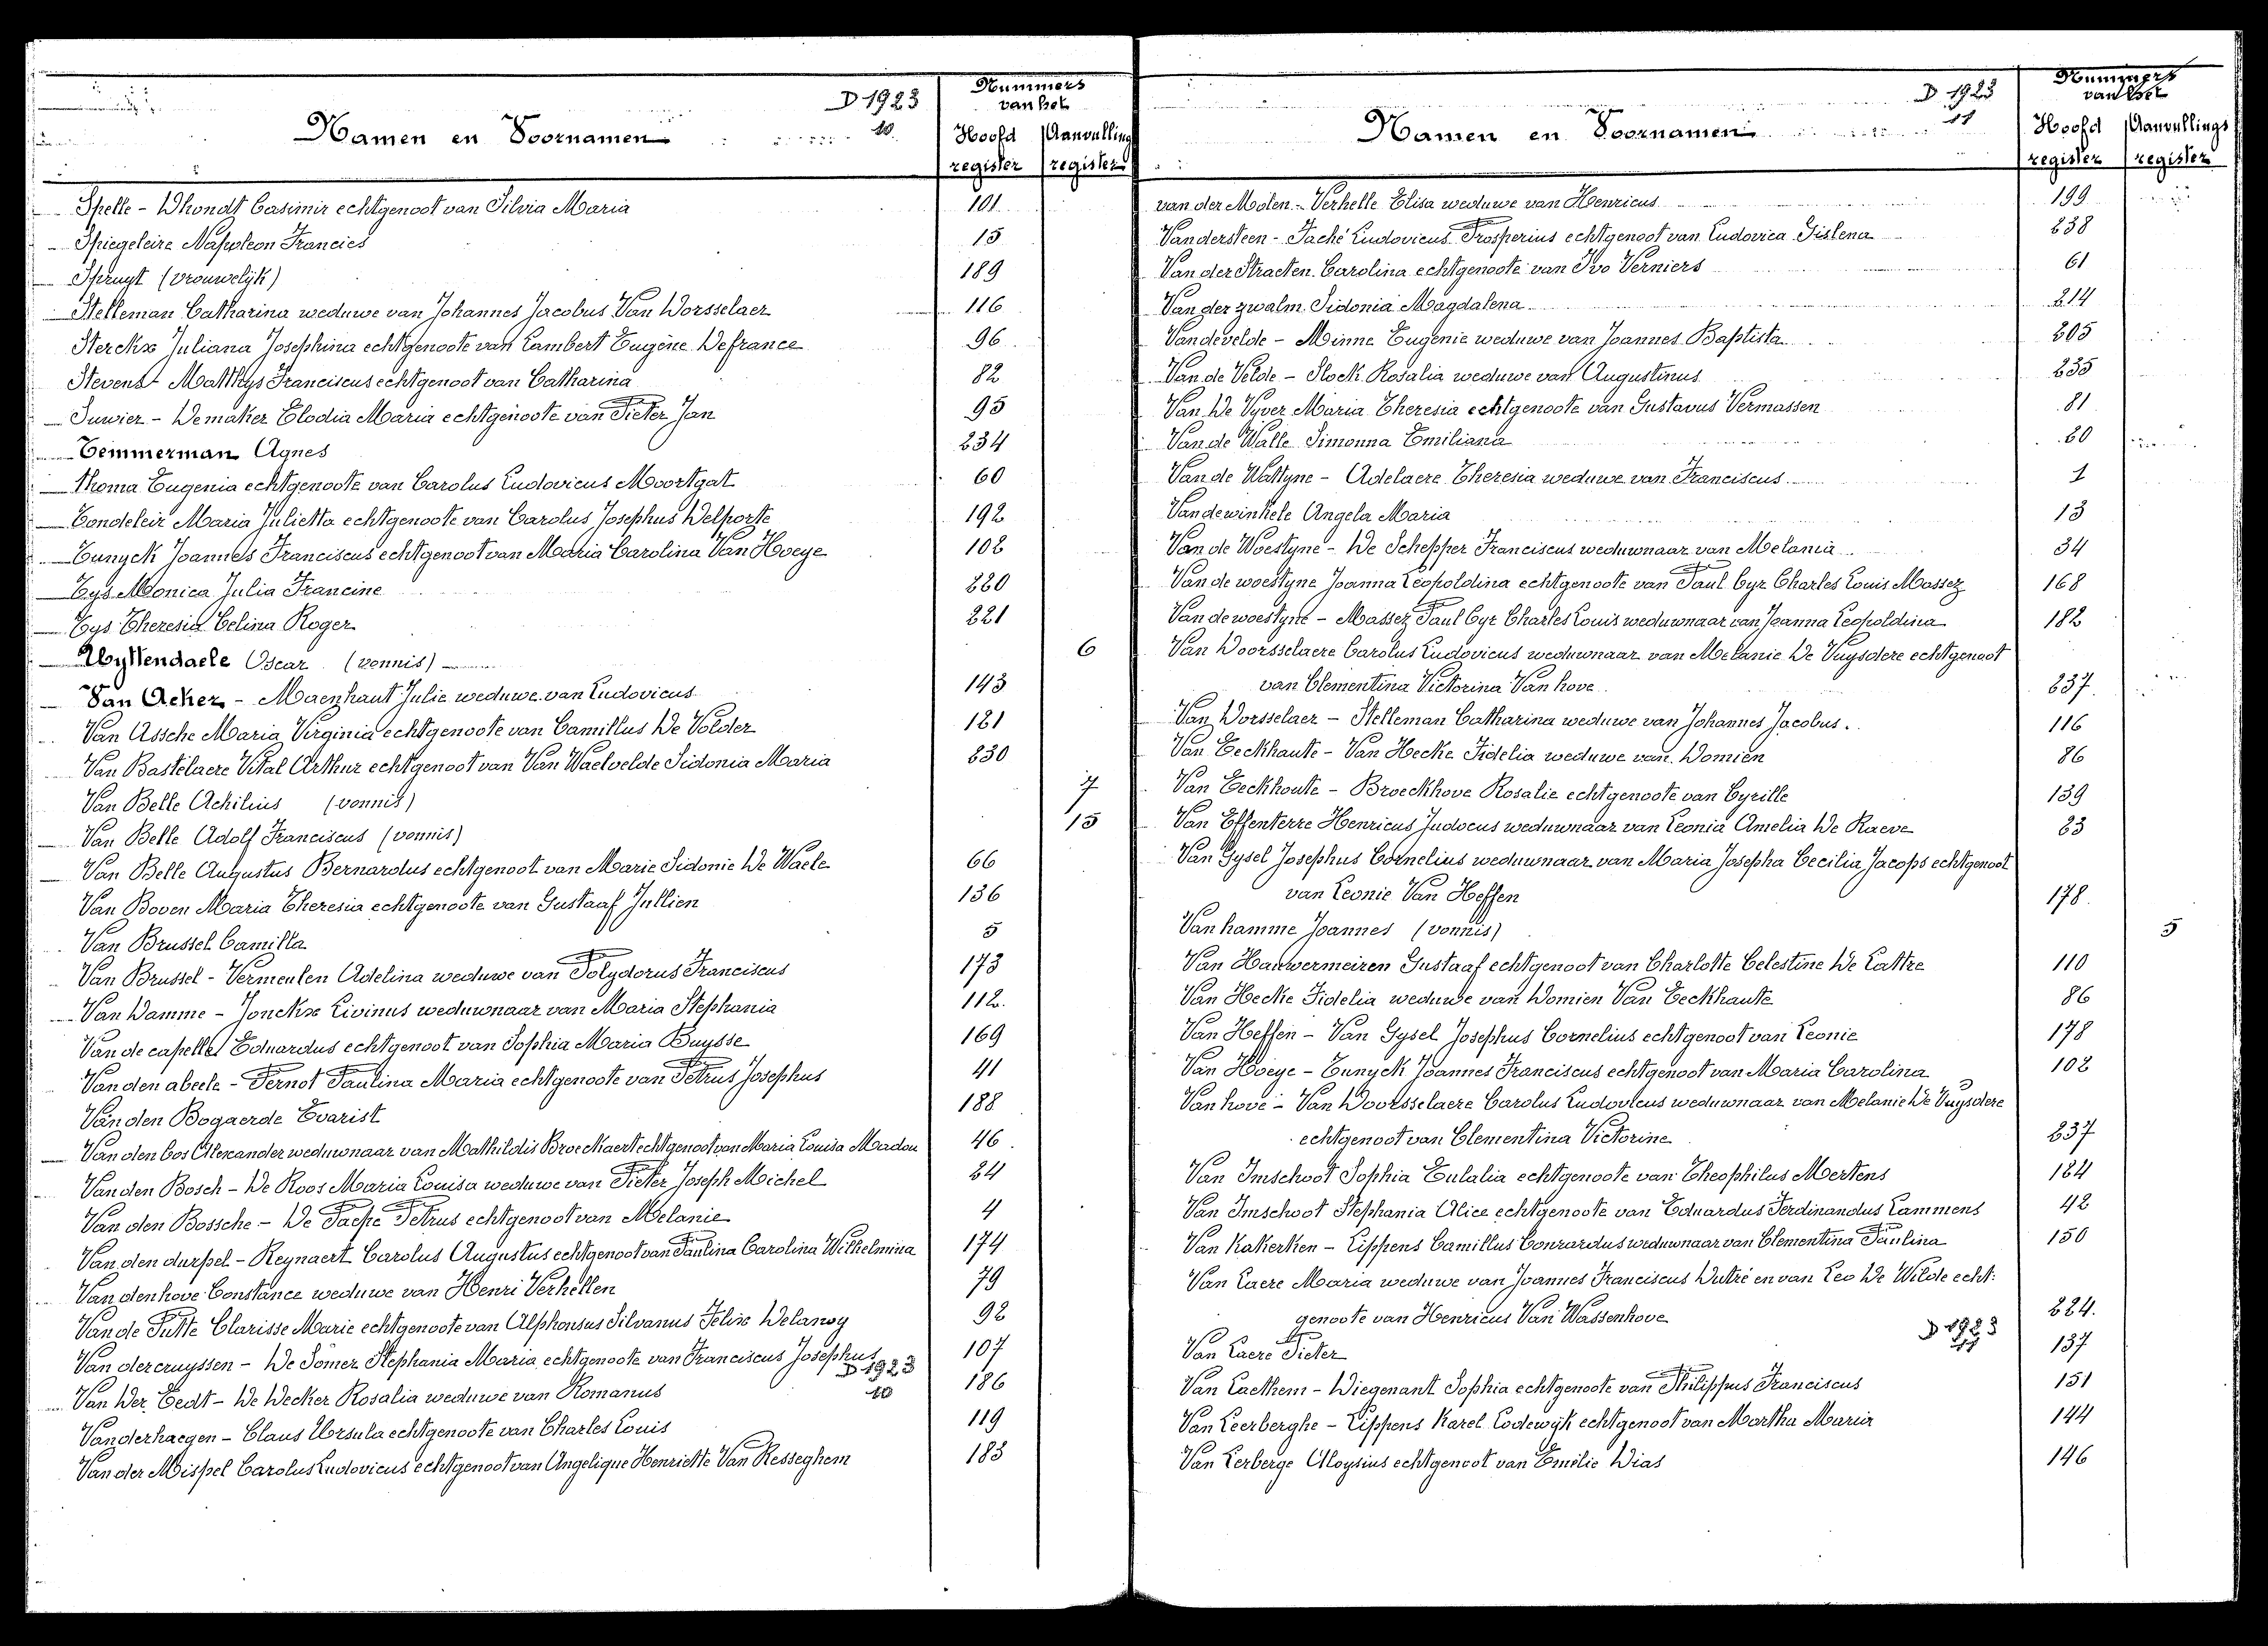 D 1923
10
Nummers
van het
Namen en Voornamen
Hoofd Aanvulling
register register
Spelle - Dhondt Casimir echtgenoot van Silvia Maria 101
Spiegeleire Napoleon Francies 15
Spruyt (vrouwelijk) 189
Stelleman Catharina weduwe van Johannes Jacobus Van Dorsselaer 116
Sterckx Juliana Josephina echtgenoote van Lambert Eugène Defrance 96
Stevens - Matthys Franciscus echtgenoot van Catharina 82
Suwier - Demaker Elodia Maria echtgenoote van Pieter Jan 95
Temmerman Agnes 234
Thoma Eugenia echtgenoote van Carolus Ludovicus Moortgat 60
Tondeleir Maria Julietta echtgenoote van Carolus Josephus Delporte 192
Tunyck Joannes Franciscus echtgenoot van Maria Carolina Van Hoeye 102
Tys Monica Julia Francine 220
Tys Theresia Celina Roger 221
Uyttendaele Oscar (vonnis) 6
Van Acker - Maenhaut Julie weduwe van Ludovicus 143
Van Assche Maria Virginia echtgenoote van Camillus De Volder 121
Van Bastelaere Vital Arthur echtgenoot van Van Waelvelde Sidonia Maria 230
Van Belle Achilius (vonnis) 7
Van Belle Adolf Franciscus (vonnis) 15
Van Belle Augustus Bernardus echtgenoot van Marie Sidonie De Waele 66
Van Boven Maria Theresia echtgenoote van Gustaaf Jullien 136
Van Brussel Camilla 5
Van Brussel - Vermeulen Adelina weduwe van Polydorus Franciscus 173
Van Damme - Jonckx Livinus weduwnaar van Maria Stephania 112
Van de capelle Eduardus echtgenoot van Sophia Maria Buysse 169
Van den abeele - Pernot Paulina Maria echtgenoote van Petrus Josephus 41
Van den Bogaerde Evarist 188
Van den bos Alexander weduwnaar van Mathildis Broeckaert echtgenoot van Maria Louisa Madou 46
Van den Bosch - De Roos Maria Louisa weduwe van Pieter Joseph Michel 24
Van den Bossche - De Paepe Petrus echtgenoot van Melanie 4
Van den durpel - Reynaert Carolus Augustus echtgenoot van Paulina Carolina Wilhelmina 174
Van den hove Constance weduwe van Henri Verhellen 79
Van de Putte Clarisse Marie echtgenoote van Alphonsus Silvanus Felix Delanoy 92
Van dercruyssen - De Somer Stephania Maria echtgenoote van Franciscus Josephus 107
D 1923
10
Van Der Eedt - De Decker Rosalia weduwe van Romanus 186
Vanderhaegen - Claus Ursula echtgenoote van Charles Louis 119
Van der Mispel Carolus Ludovicus echtgenoot van Angelique Henriette Van Resseghem 183
D 1923
11
Nummers
van het
Namen en Voornamen
Hoofd Aanvullings
register register
van der Molen - Verhelle Elisa weduwe van Henricus 199
Vandersteen - Taché Ludovicus Prosperius echtgenoot van Ludovica Gislena 238
Van der Straeten Carolina echtgenoote van Ivo Verniers 61
Van der zwalm Sidonia Magdalena 214
Vandevelde - Minne Eugenie weduwe van Joannes Baptista 205
Van de Velde - Slock Rosalia weduwe van Augustinus 235
Van De Vyver Maria Theresia echtgenoote van Gustavus Vermassen 81
Van de Walle Simonna Emiliana 20
Van de Wattyne - Adelaere Theresia weduwe van Franciscus 1
Vandewinkele Angela Maria 13
Van de Woestyne - De Schepper Franciscus weduwnaar van Melania 34
Van de woestyne Joanna Leopoldina echtgenoote van Paul Cyr Charles Louis Massez 168
Van de woestyne - Massez Paul Cyr Charles Louis weduwnaar van Joanna Leopoldina 182
Van Doorsselaere Carolus Ludovicus weduwnaar van Melanie De Vuysdere echtgenoot
van Clementina Victorina Van hove 237
Van Dorsselaer - Stelleman Catharina weduwe van Johannes Jacobus. 116
Van Eeckhaute - Van Hecke Fidelia weduwe van Domien 86
Van Eeckhoute - Broeckhove Rosalie echtgenoote van Cyrille 139
Van Effenterre Henricus Judocus weduwnaar van Leonia Amelia De Raeve 23
Van Gysel Josephus Cornelius weduwnaar van Maria Josepha Cecilia Jacops echtgenoot
van Leonie Van Heffen 178
Van hamme Joannes (vonnis) 5
Van Hauwermeiren Gustaaf echtgenoot van Charlotte Celestine De Lattre 110
Van Hecke Fidelia weduwe van Domien Van Eeckhaute 86
Van Heffen - Van Gysel Josephus Cornelius echtgenoot van Leonie 178
Van Hoeye - Tunyck Joannes Franciscus echtgenoot van Maria Carolina 102
Van hove - Van Doorsselaere Carolus Ludovicus weduwnaar van Melanie De Vuysdere
echtgenoot van Clementina Victorine 237
Van Imschoot Sophia Eulalia echtgenoote van Theophilus Mertens 124
Van Imschoot Stephania Alice echtgenoote van Eduardus Ferdinandus Lammens 42
Van Kakerken - Lippens Camillus Conrardus weduwnaar van Clementina Paulina 150
Van Laere Maria weduwe van Joannes Franciscus Dutré en van Leo De Wilde echt:
genoote van Henricus Van Wassenhove 224.
D 1923
11
Van Laere Pieter 137
Van Laethem - Diegenant Sophia echtgenoote van Philippus Franciscus 151
Van Leerberghe - Lippens Karel Lodewijk echtgenoot van Martha Maria 144
Van Lerberge Aloysius echtgenoot van Emilie Dias 146